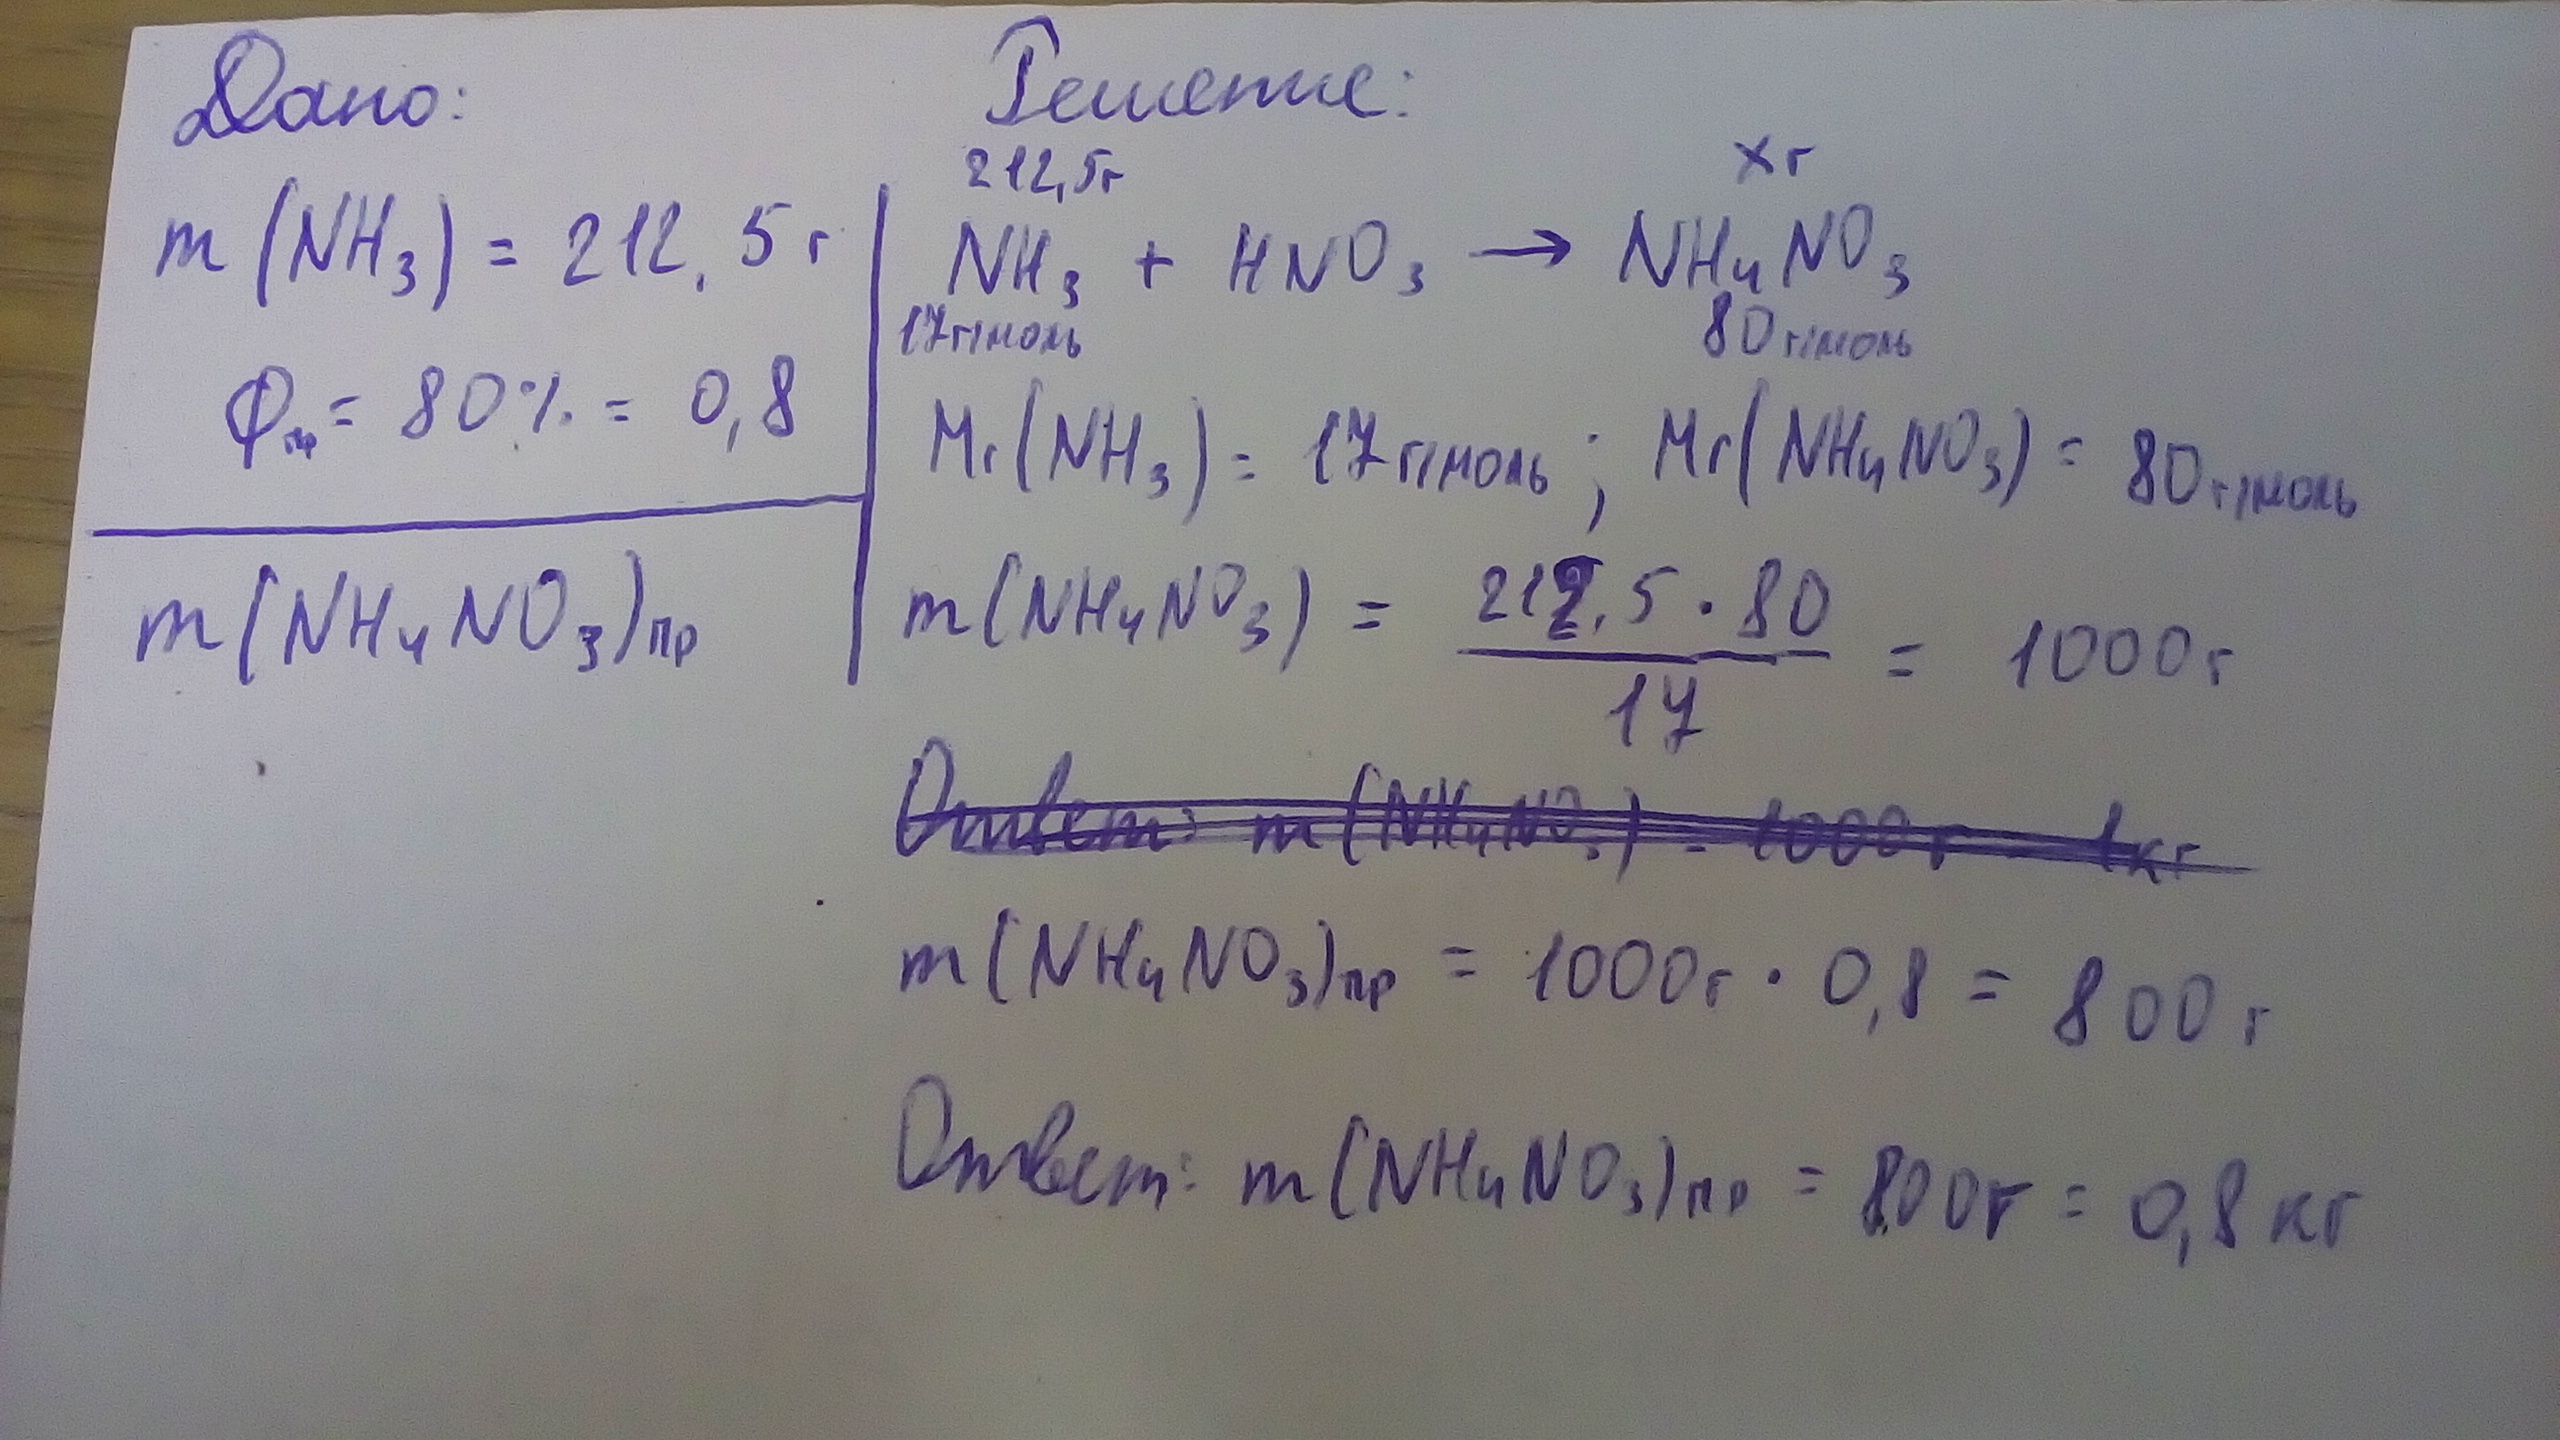 Дано:
m (NH3) = 212,5 г
φпр = 80% = 0,8
m(NH4NO3)пр
Решение:
212,5г xг
NH3 + HNO3 → NH4NO3
17г/моль 80г/моль
Mr(NH3) = 17г/моль ; Mr(NH4NO3) = 80г/моль
m(NH4NO3) = 212,5 · 80 / 17 = 1000г
Ответ: m(NH4NO3) = 1000г = 1кг
m(NH4NO3)пр = 1000г · 0,8 = 800 г
Ответ: m(NH4NO3)пр = 800г = 0,8 кг